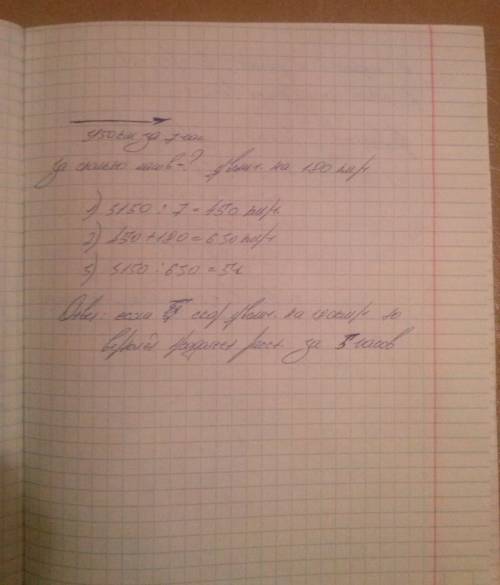 3150 км за 7 час
За сколько часов - ? увелич. на 180 км/ч
1) 3150 : 7 = 450 км/ч
2) 450 + 180 = 630 км/ч
3) 3150 : 630 = 5ч
Ответ: если скор увелич. на 180 км/ч то
расст. за 5 часов